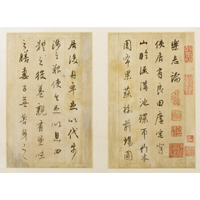 樂志論
使居有良田廣宅
山臨流溝池環帀竹木
前場圃
後舟車足以代步
涉之難使令足以息四
體之役養親有兼珍
之膳妻孥無苦身之